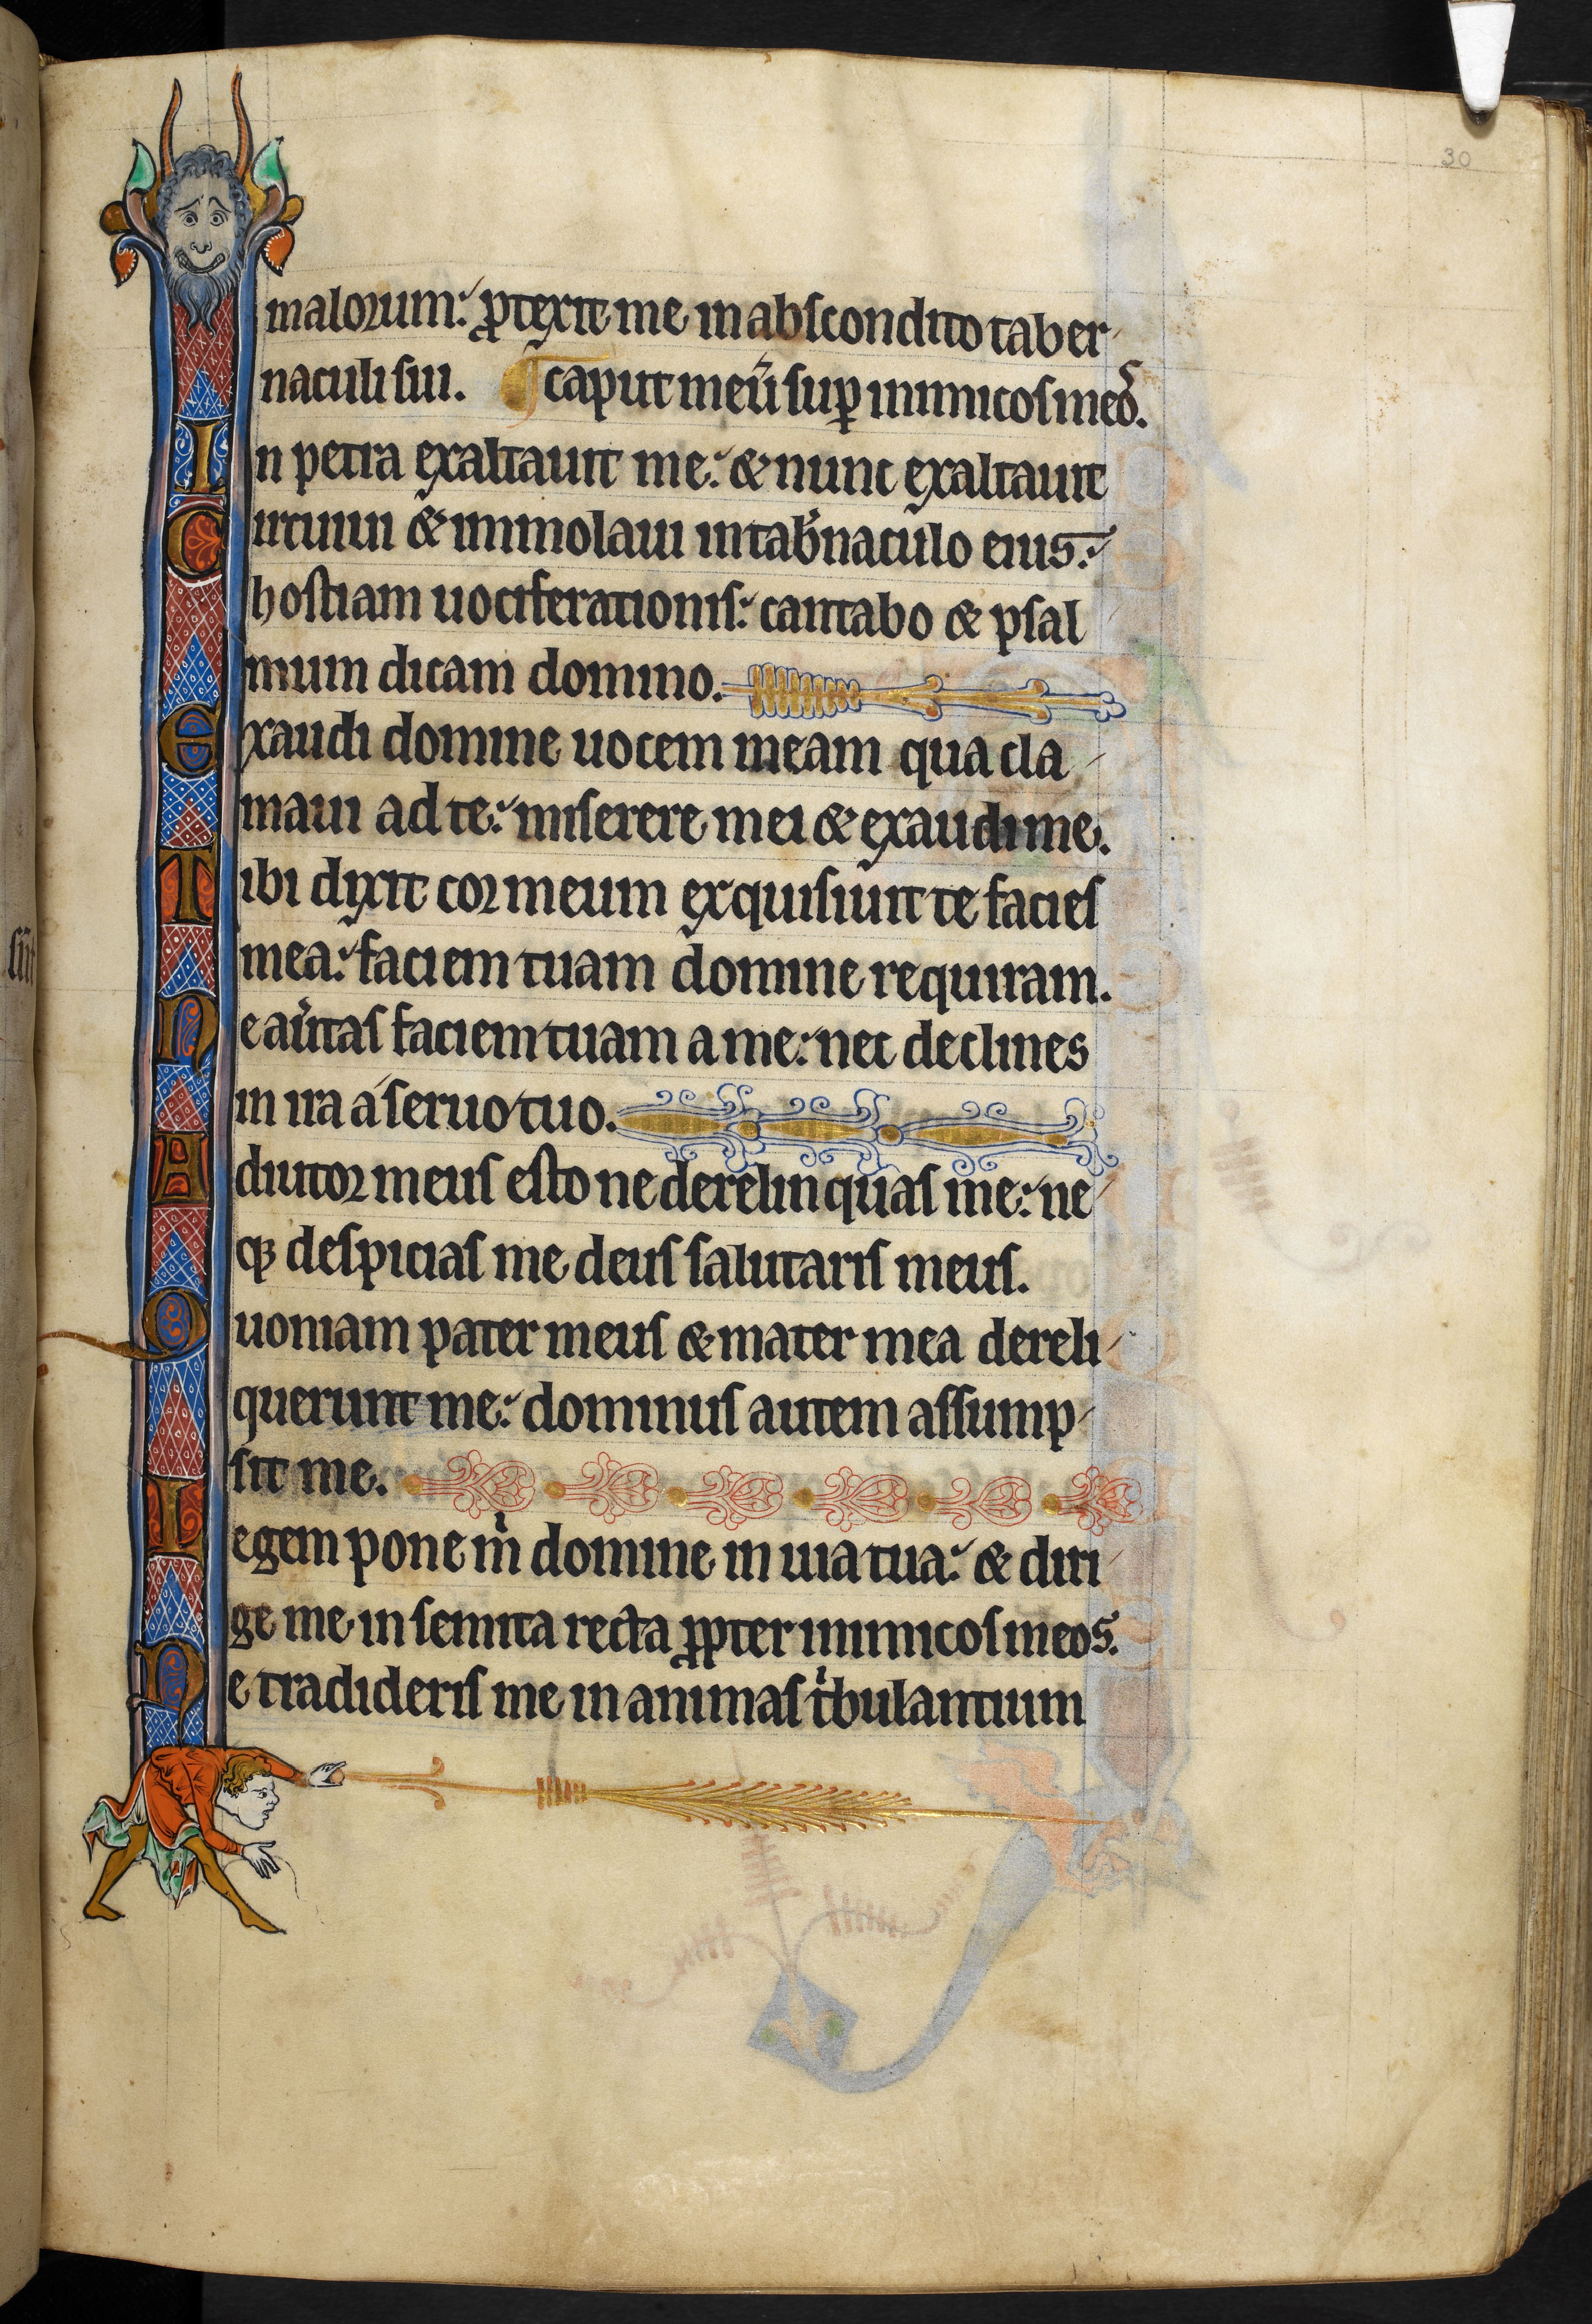 30
malorum: ꝓtexit me in abscondito taber
naculi sui. ¶ caput meũ suꝑ inimicos meoˢ.
In petra exaltauit me: & nunc exaltauit
Circuiui & immolaui in tab̉naculo eius:
hostiam uociferationis: cantabo & psal
mum dicam domino.
Exaudi domine uocem meam qua cla
maui ad te: miserere mei & exaudi me.
Tibi dixit cor meum exquisiuit te facies
mea: faciem tuam domine requiram.
Ne au̓tas faciem tuam a me: nec declines
in ira a seruo tuo.
Adiutor meus esto ne derelinquas me: ne
qꝫ despicias me deus salutaris meus.
Quoniam pater meus & mater mea dereli
querunt me: dominus autem assump
sit me.
Legem pone mͥ domine in uia tua: & diri
ge me in semita recta ꝓpter inimicos meos.
Ne tradideris me in animas tͥbulantium